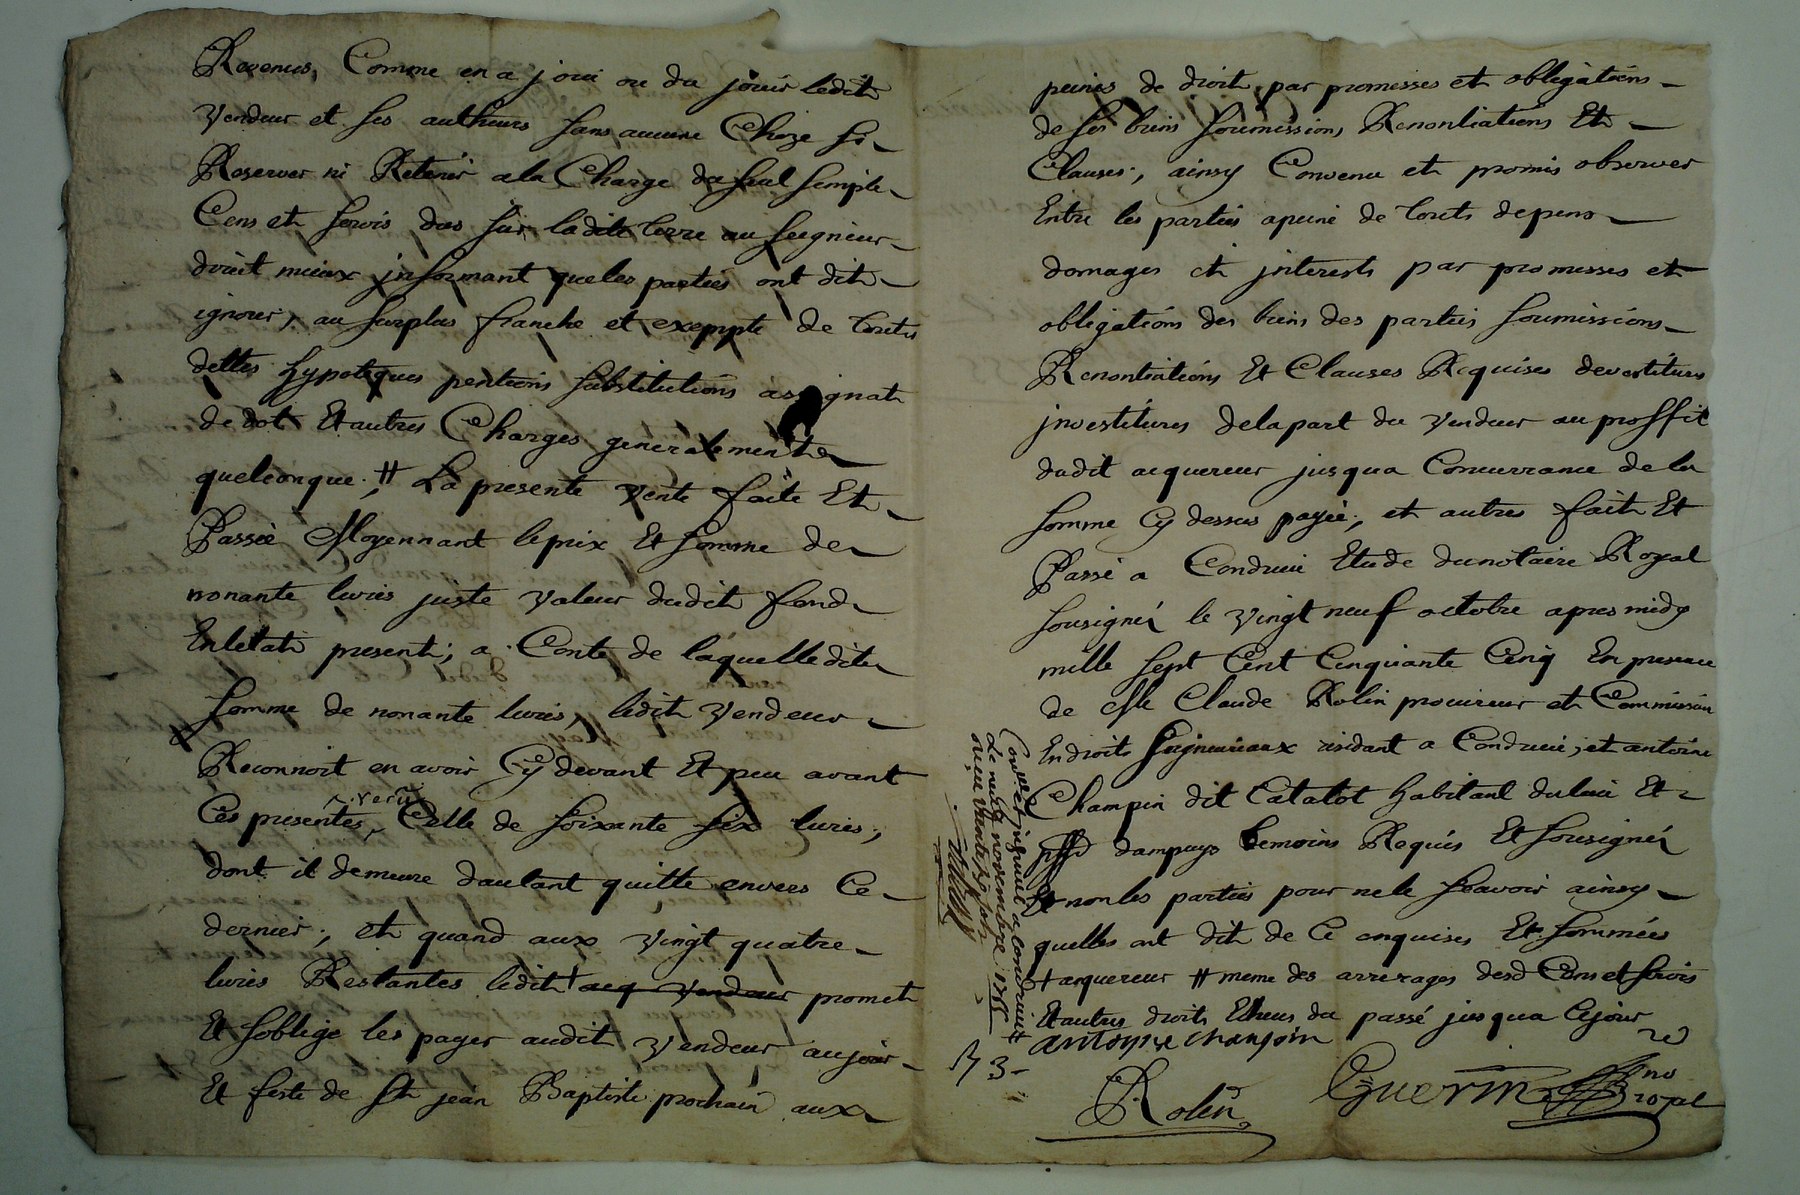 Revenus, Comme en a joui ou du jouir ledit
Vendeur et ses autheurs sans aucune Choze se
Reserver ni Retenir a la Charge du seul simple
Cens et servis dus sur ladite terre au seigneur
droit mieux jnformant que les parties ont dit
ignorer, au surplus franche et exempte de touts
dettes hypoteques pentions substitutions assignats
de dot Et autres Charges generalement
quelconque; ⧺ La presente vente faite Et
Passée Moyennant le prix Et somme de
nonante livres juste valeur dudit fond
En letat present; a Conte de laquelle dite
somme de nonante livres, ledit Vendeur
Reconnoit en avoir Cy devant Et peu avant
Ces presentes, reçu Celle de soixante six livres;
dont il demeure dautant quitte envers Ce
dernier; et quand aux vingt quatre
livres Restantes ledit + acq vendeur promet
Et soblige les payer audit Vendeur au jour
Et feste de st jean Baptiste prochain aux
peines de droit, par promesses et obligations
de ses biens soumissions Renontiations Et
Clauses; ainsy Convenu et promis observer
Entre les parties a peine de touts depens
domages et jnterests par promesses et
obligations des biens des parties soumissions
Renontiations Et Clauses Requises devestitures
jnvestitures de la part du vendeur au proffit
dudit acquereur jusqua Concurrance de la
somme Cy dessus payée; et autres fait Et
Passé a Condrieu Etude du notaire Royal
sousigné le vingt neuf octobre apres midy
mille sept Cent Cinquante Cinq En presence
de Me Claude Rolin procureur et Commissaire
En droits seigneuriaux residant a Condrieu; et antoine
Champin dit Catalot habitant du lieu Et
dampuys temoins Requis Et sousignés
Et non les parties pour ne le scavoir ainsy
quelles ont dit de Ce enquises Et sommées
+ acquereur ⧺ meme des arrerages desd Cens et servis
Et autres droits Echeus du passé jusqua Cejour
antoine champin
Rolin
Guerin no royal
Conllé et jnsinué a Condrieu
Le neuf novembre 1755